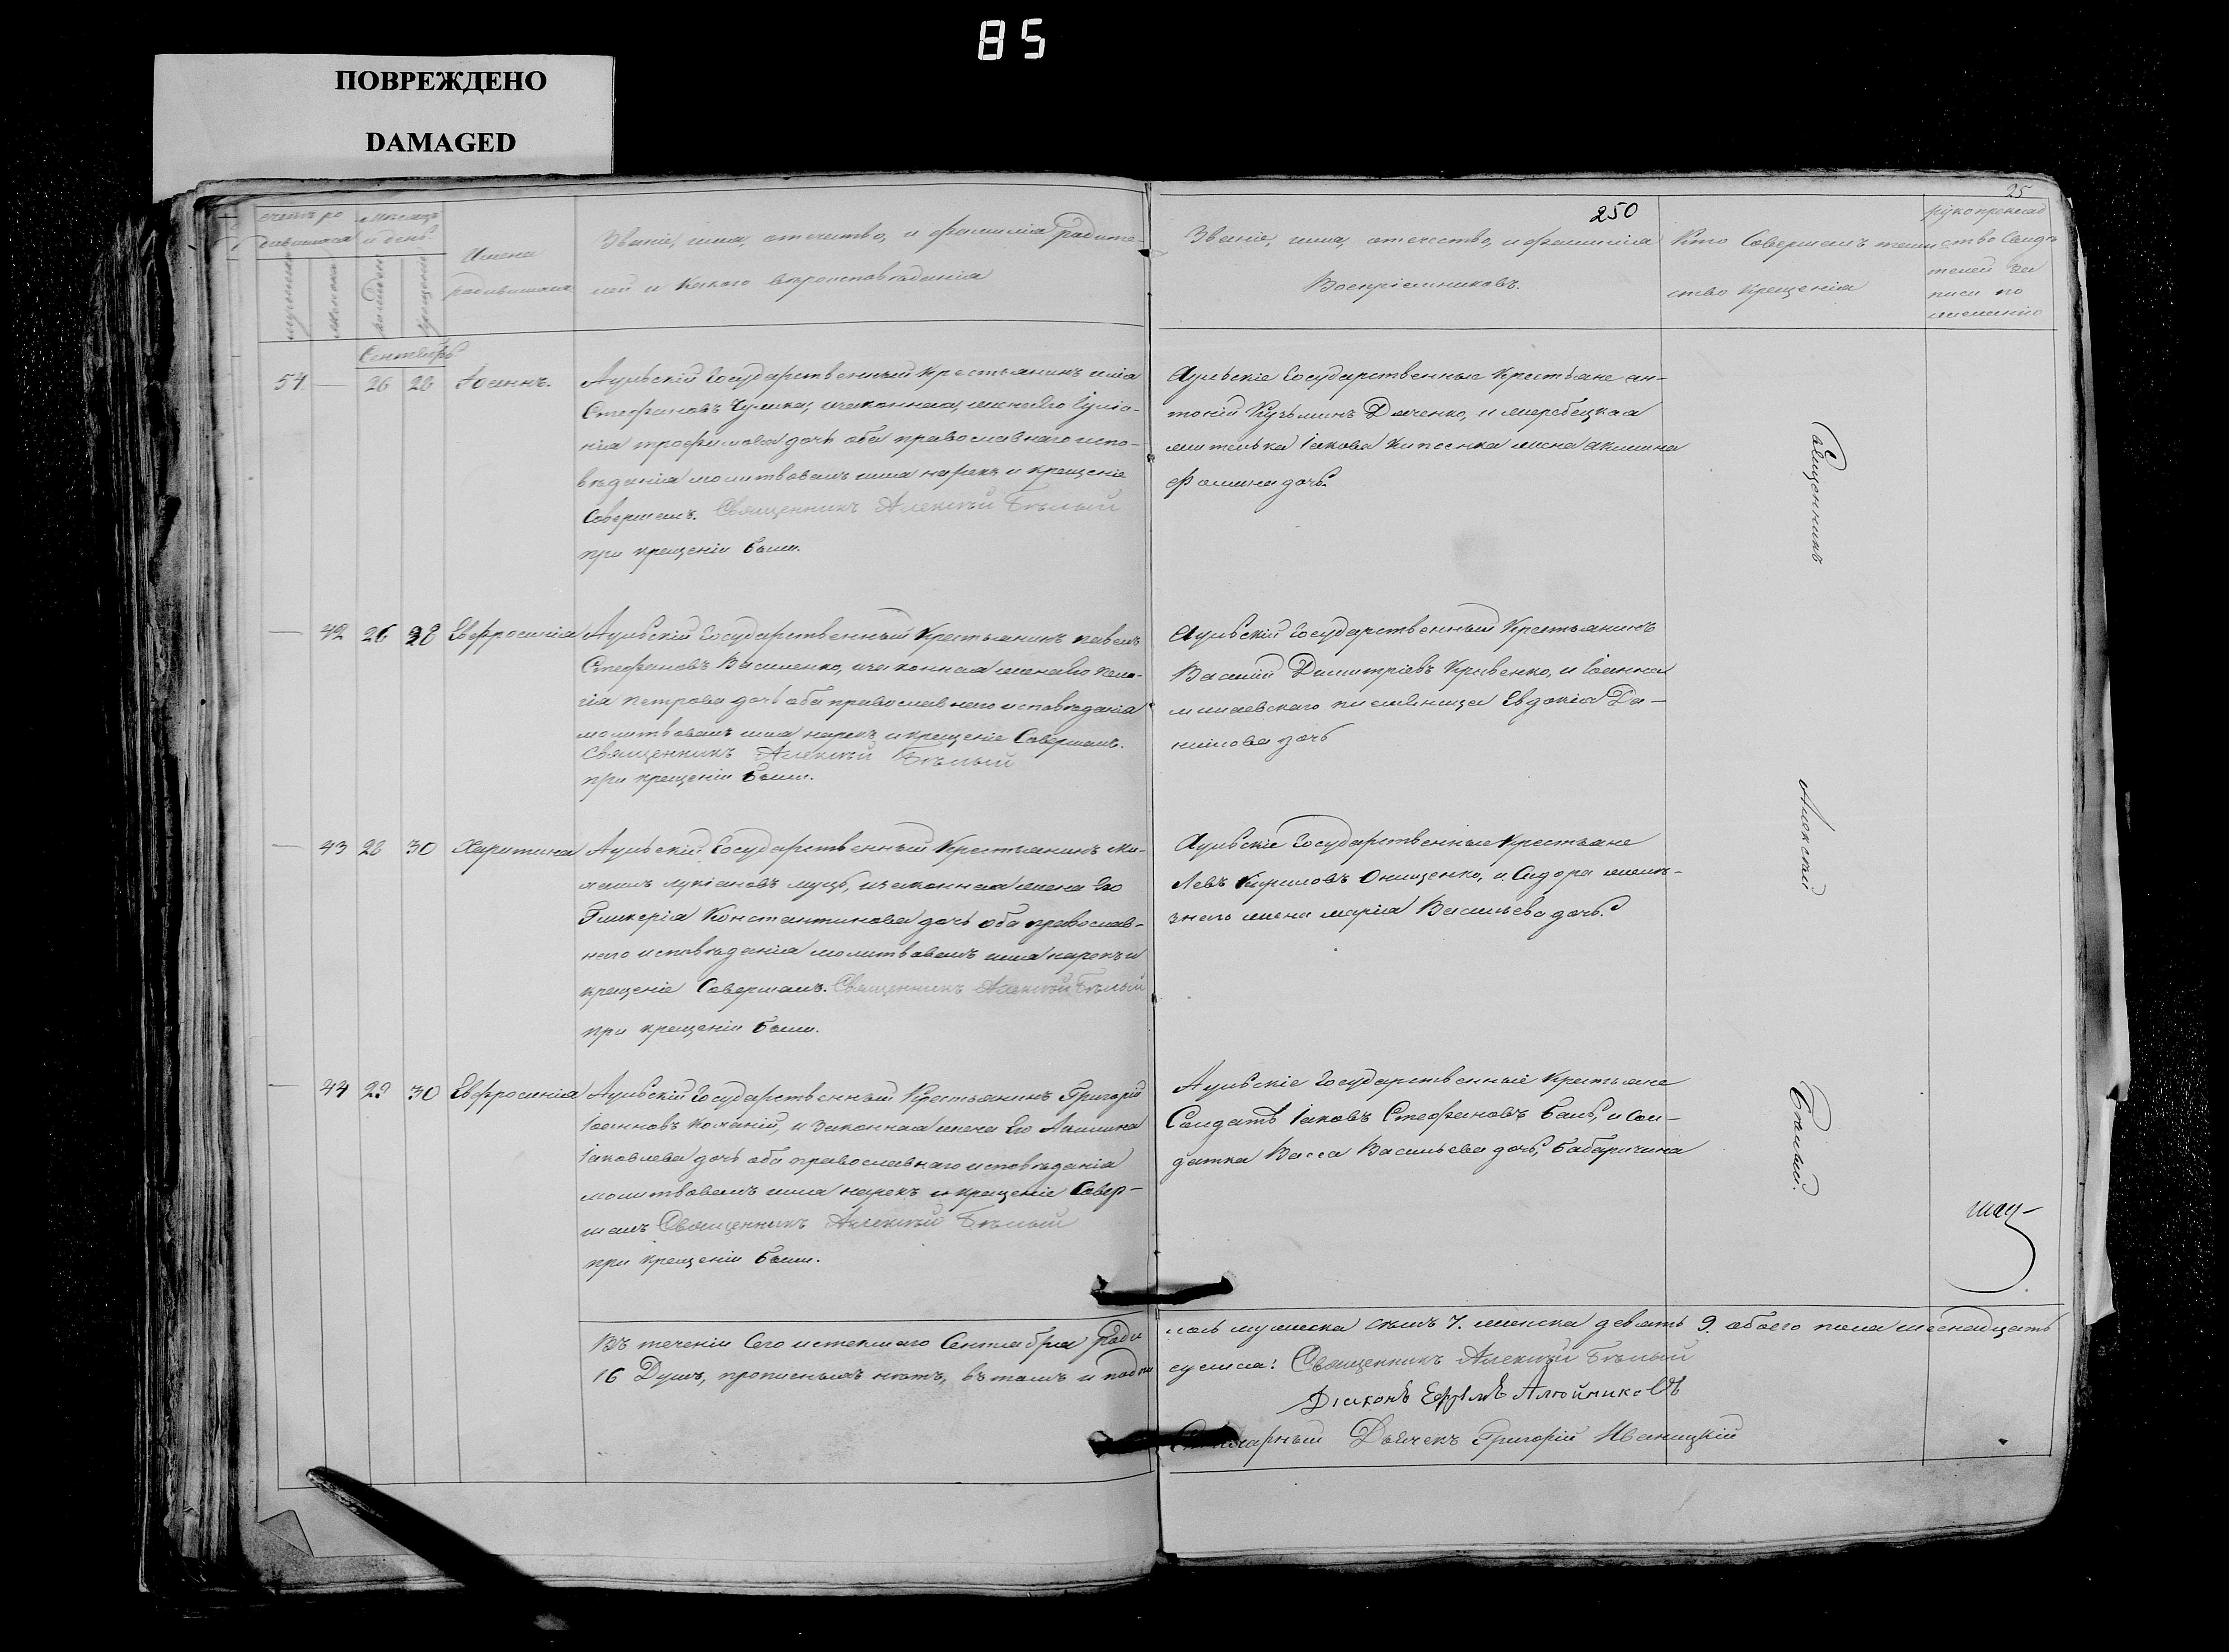 85
ПОВРЕЖДЕНО
DAMAGED
250
25
Имена
родившихся
Званіе, имя, отечество, и фамилія родите-
лей и какого вѣроисповѣданія
Званіе, имя, отечество, и фамилія
Воспріемниковъ.
Кто Совершалъ таин
ство Крещенія
рукоприклад
ство Свидѣ
телей за
писи по
желанію
Сентябрь
54 — 26 28 Іоаннъ.
Аульскій Государственный Крестьянинъ
Стефановъ изаконная жена его Іулiа-
нiя трофимова дочь оба православнаго испо-
вѣданія молитвовалъ имя нарекъ и крещеніе
Совершалъ. Священникъ Алексѣй Бѣлый
при крещеніи были.
Аульскіе Государственные Крестьяне ан-
тоній Кузьминъ Дяченко, и
жителька Іакова жена акилина
фомина дочь.
— 42 26 28 Евфросинія
Аульскій Государственный Крестьянинъ павелъ
Стефановъ Василенко, изаконная жена его пела-
гія петрова дочь оба православнаго исповѣданія
молитвовалъ имя нарекъ и крещеніе Совершалъ.
Священникъ Алексѣй Бѣлый
при крещеніи были.
Аульскій Государственный Крестьянинъ
Василій Димитріевъ Кривенко, и Іоанна
племяница Евдокія Да-
нилова дочь
— 43 28 30 Харитина
Аульскій Государственный Крестьянинъ Ми-
хаилъ лукіановъ изаконная жена Его
Гликерія Константинова дочь оба православ-
наго исповѣданія молитвовалъ имя нарекъ и
крещеніе Совершалъ. Священникъ Алексѣй Бѣлый
при крещеніи были.
Аульскіе Государственные Крестьяне
Левъ Кириловъ Онищенко, и Сидора
жена марія Васильева дочь.
— 44 29 30 Евфросинія
Аульскій Государственный Крестьянинъ Григорій
Іоанновъ Коханій, и Законная жена Его Акилина
Іаковлева дочь оба православнаго исповѣданія
молитвовалъ имя нарекъ и крещеніе Совер-
шалъ Священникъ Алексѣй Бѣлый
при крещеніи были.
Аульскіе Государственныіе Крестьяне
Солдатъ Іаковъ Стефановъ и Сол-
датка Васса Васильева дочь, Бабаричина
Священникъ
Алексѣй
Бѣлый.
Въ теченіи Сего истекшаго Сентября роди
лось мужеска семь 7. женска девять 9. обоего пола шеснадцать
16 Душъ, прописныхъ нѣтъ, въ томъ и подпи
суемся: Священникъ Алексѣй Бѣлый
Діаконъ Ефимъ
Дьячекъ Григорій Иваницкій